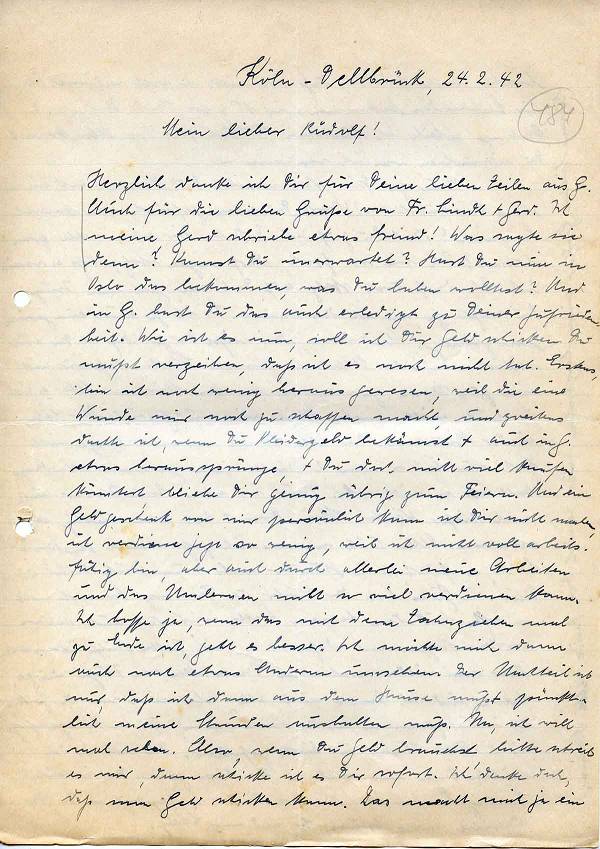 Köln-Dellbrück, 24.2.42
484
Mein lieber Rudolf!
Herzlich danke ich Dir für Deine lieben Zeilen aus G.
Auch für die lieben Grüße von Fr. Lindt + Gerd. Ich
meine, Gerd schriebe etwas fremd! Was sagte sie
denn? Kamst Du unerwartet? Hast Du nun in
Oslo das bekommen, was Du haben wolltest? Und
in G. hast Du das auch erledigt zu Deiner Zufrieden-
heit. Wie ist es nun, soll ich Dir Geld schicken Du
mußt verzeihen, daß ich es noch nicht tat. Erstens,
bin ich noch wenig heraus gewesen, weil die eine
Wunde mir noch zu schaffen macht, und zweitens
dachte ich, wenn Du Kleidergeld bekämst + auch in G.
etwas herausspränge, + Du dort nicht viel kaufen
könntest bliebe Dir genug übrig zum Feiern. Und ein
Geldgeschenk von mir persönlich kann ich Dir nicht machen,
ich verdiene jetzt so wenig, weil ich nicht voll arbeits-
fähig bin, aber auch durch allerlei neue Arbeiten
und das Umlernen nicht so viel verdienen kann.
Ich hoffe ja, wenn das mit dem Zahnziehen mal
zu Ende ist, geht es besser. Ich möchte mich dann
auch nach etwas Anderem umsehen. Der Nachteil ist
nur, daß ich dann aus dem Hause muß + pünkt-
lich meine Stunden einhalten muß. Na, ich will
mal sehen. Also wenn Du Geld brauchst bitte schreib
es mir, dann schicke ich es Dir sofort. Ich denke doch,
daß man Geld schicken kann. Das macht mich ja ein